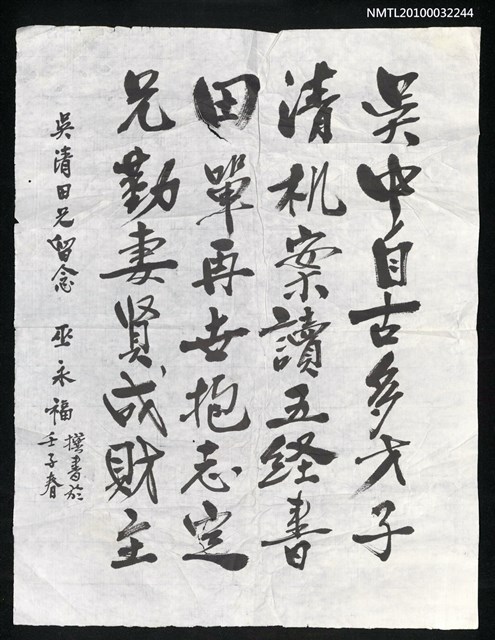 NMTL20100032244
吳中自古多才子
清机案讀五経書
田單再世抱志定
兄勤妻賢成財主
吳清田兄留念 巫永福撰書於
壬子春